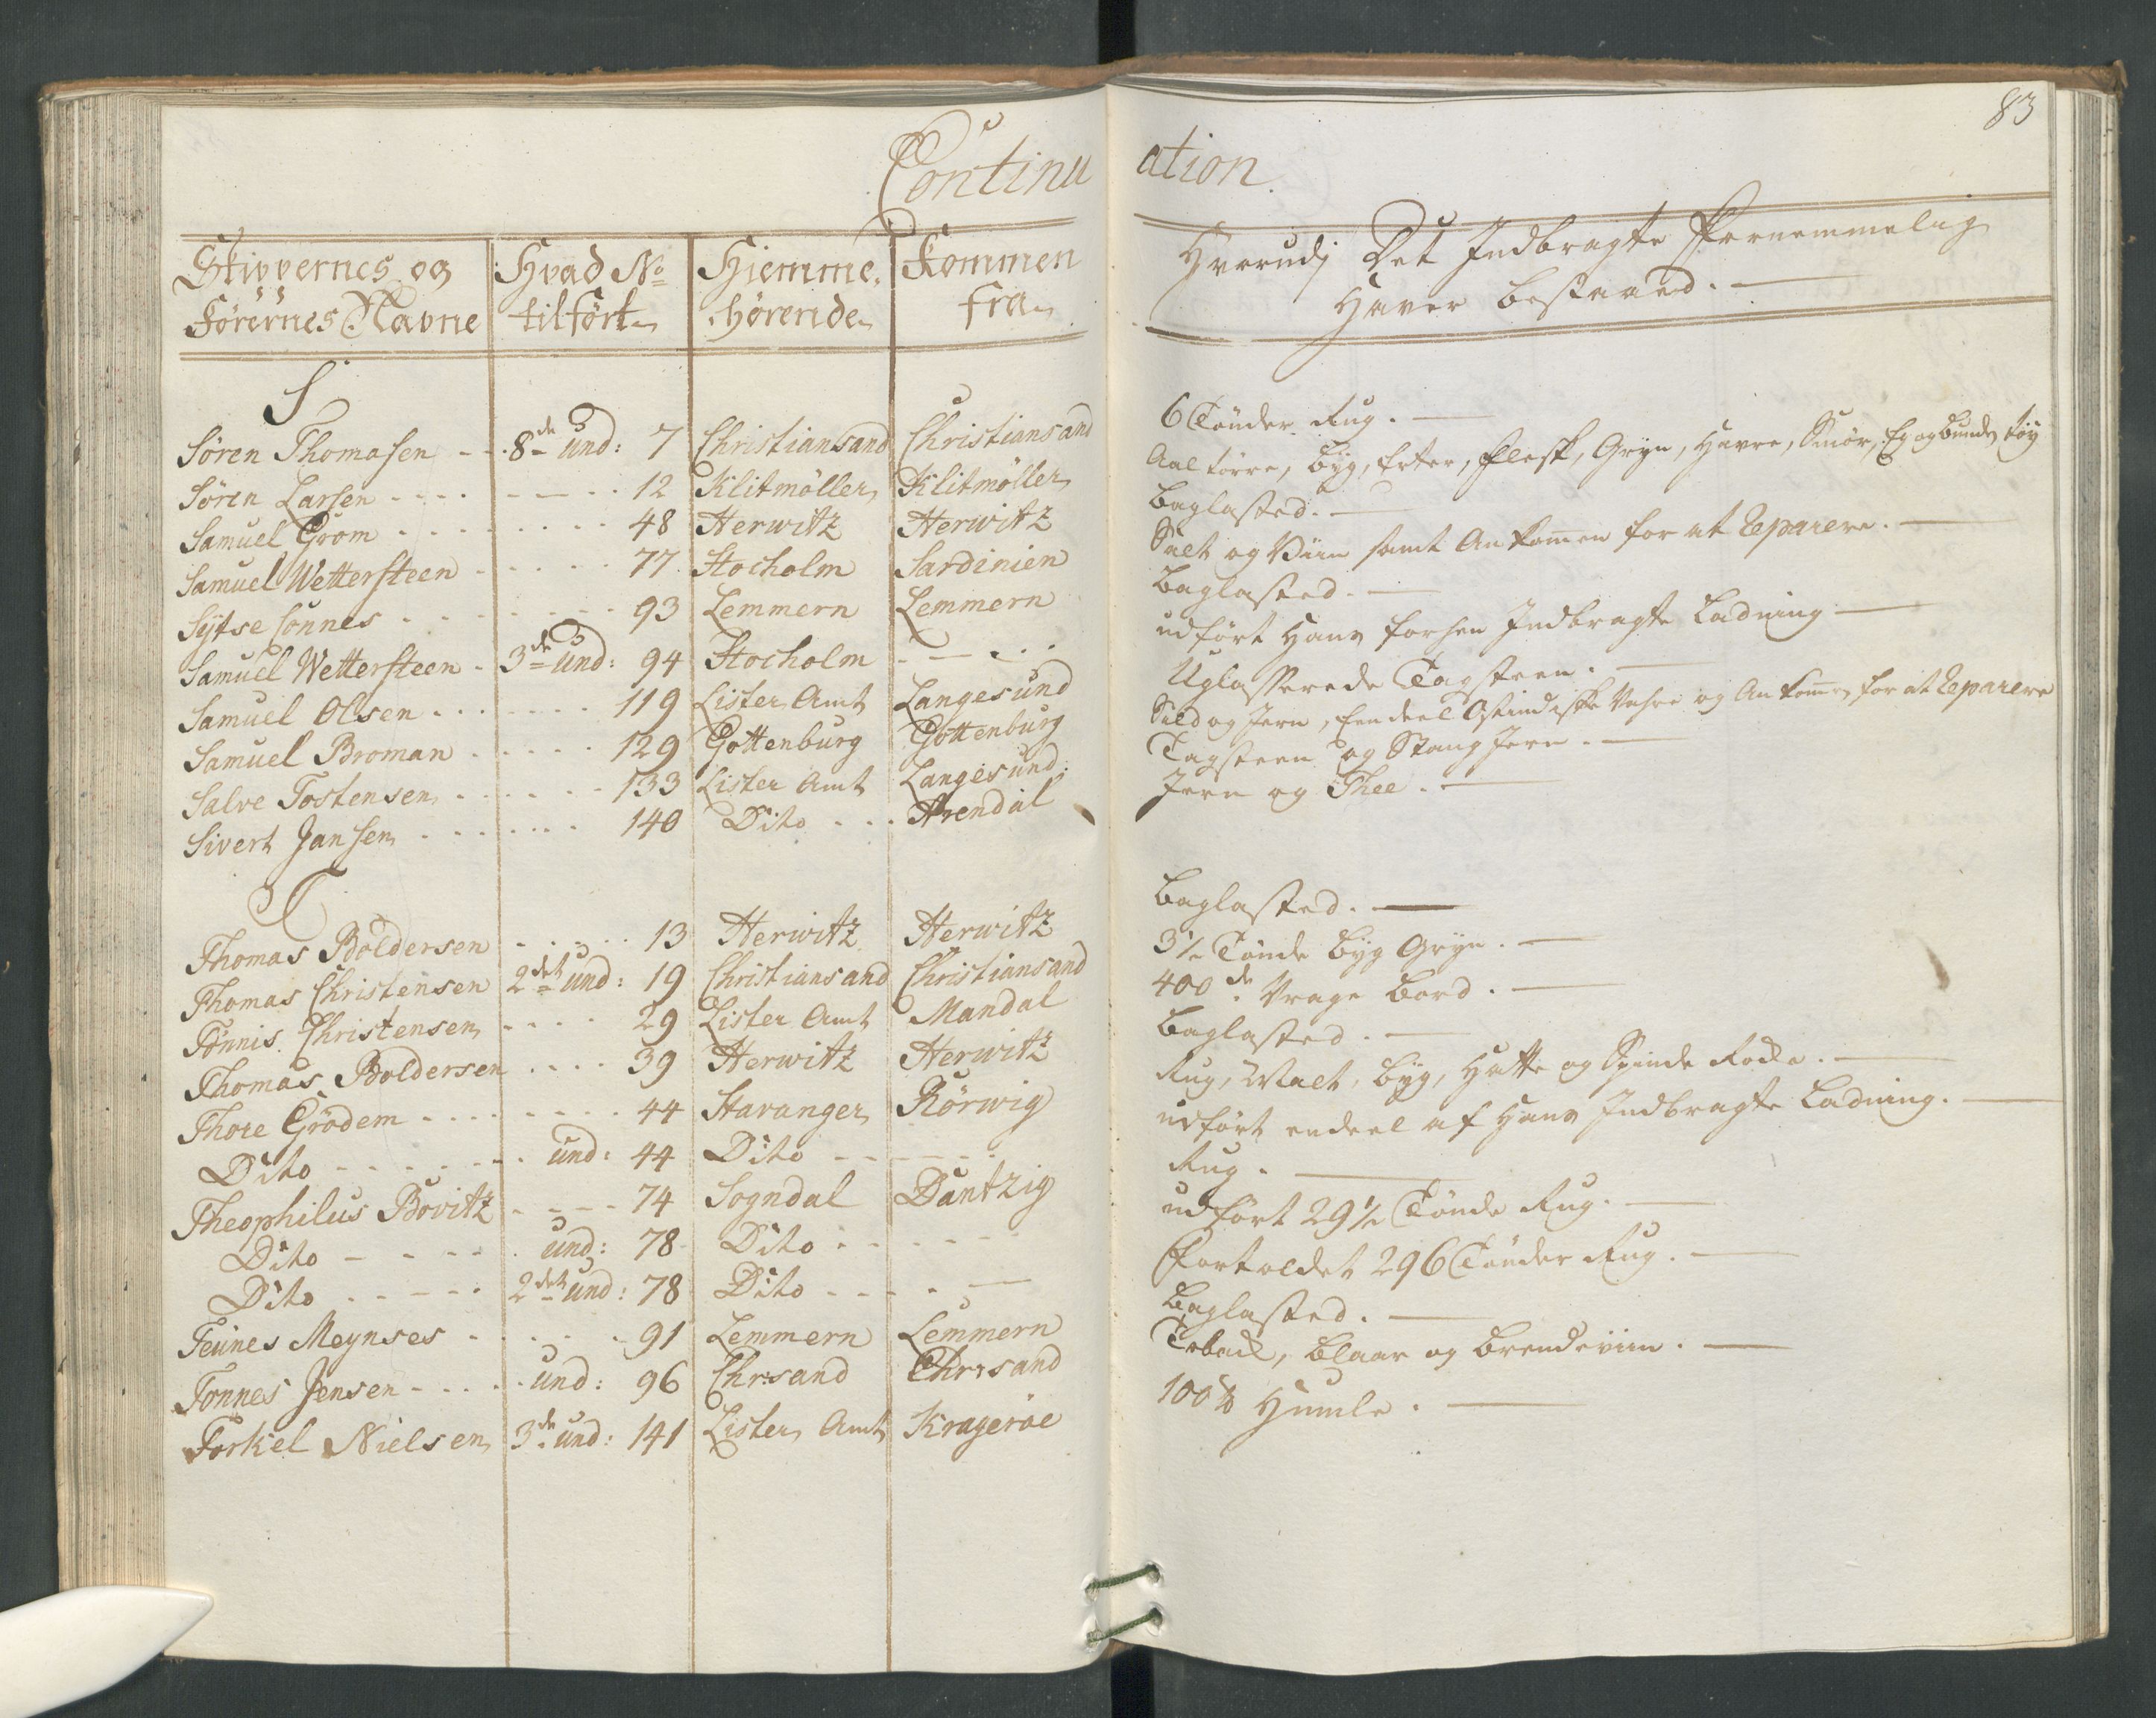 83
Continu ation
Skippernes og Hvad No Hiemme, Kommen Hvorudj Det Indbragte Fornemmelig
Förernes Navne tilfört hörende fra Haver bestaaed.
S
Sören Thomasen 8de und: 7 Christiansand Christiansand 6 Tönder Rug.
Sören Larsen 12 Klitmöller Klitmöller Aaltörre, Byg, Erter, Flesk, Gryn, Havre, Smör, Eg og Bundetöy
Samuel Grom 48 Herwitz Herwitz Baglasted.
Samuel Wettersteen 77 Stocholm Sardinien Salt og Viin samt Ankommen for at Reparere.
Sytse Connes 93 Lemmern Lemmern Baglasted.
Samuel Wettersteen 3de und: 94 Stocholm udfört Hans forhen Indbragte Ladning
Samuel Olsen 119 Lister Amt Langesund Uglasserede Tagsteen.
Samuel Broman 129 Gottenburg Gottenburg Sild og Jern, Een deel Ostindiske Vahre og Ankommen for at Reparere
Salve Tostensen 133 Lister Amt Langesund: Tagsteen og Stang Jern.
Sivert Jansen 140 Dito Arendal Jern og Thee.
T
Thomas Boldersen 13 Herwitz Herwitz Baglasted.
Thomas Christensen 2det und: 19 Christiansand Christiansand 3½ Tönde Byg Gryn.
Tönnis Christensen 29 Lister Amt Mandal 400de Vrage Bord.
Thomas Boldersen 39 Herwitz Herwitz Baglasted.
Thore Grödem 44 Stavanger Rörwig Rug, Malt, Byg, Hatte og Spinde Rocke.
Dito und: 44 Dito udfört endeel af Hans Indbragte Ladning.
Theophilus Bovitz 74 Sogndal Dantzig Rug.
Dito und: 78 Dito udfört 29½ Tönde Rug.
Dito 2det und: 78 Dito Fortoldet 296 Tönder Rug.
Teunes Meynses 91 Lemmern Lemmern Baglasted.
Tonnes Jensen und: 96 Chr:sand Chr:sand Toback, Blaar og Brendeviin.
Torkel Nielsen 3de und: 141 Lister Amt Krageröe 100 ℔ Humle.